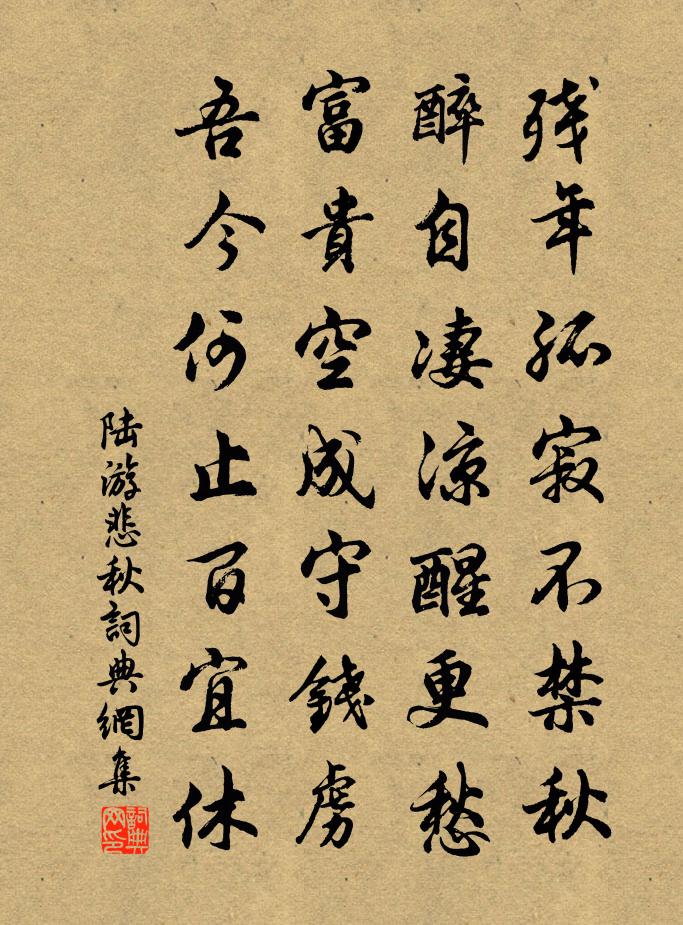 残年孤寂不禁秋
醉自凄凉醒更愁
富貴空成守錢虜
吾今何止百宜休
陆游悲秋詞典網集
詞典网印